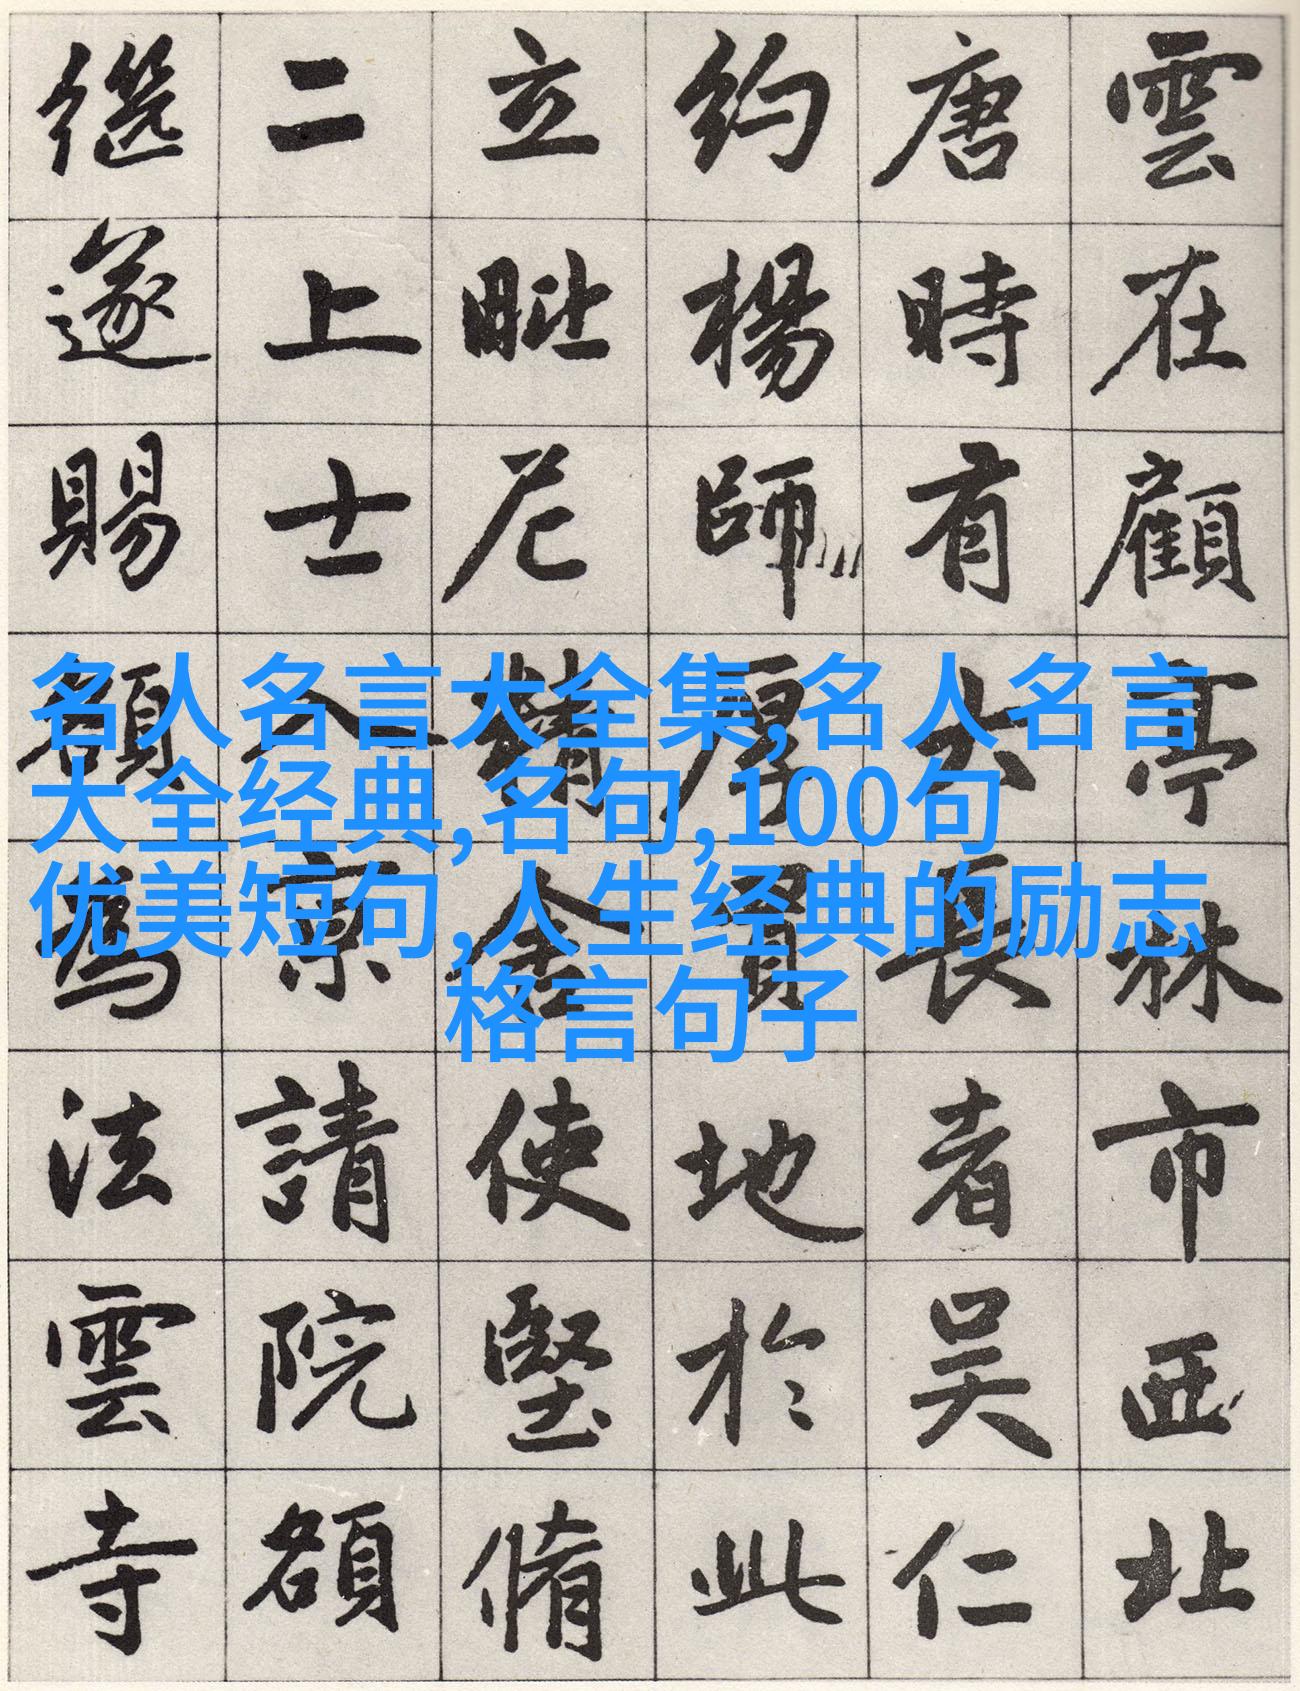 名人名言大全集,名人名言
大全经典,名句,100句
优美短句,人生经典的励志
格言句子
雲在顧亭林市西北
唐時有大長者吴仁
約楊師厚買地於此
立毗尼精舍使堅脩
二上士入京請院額
遂賜額為法雲寺